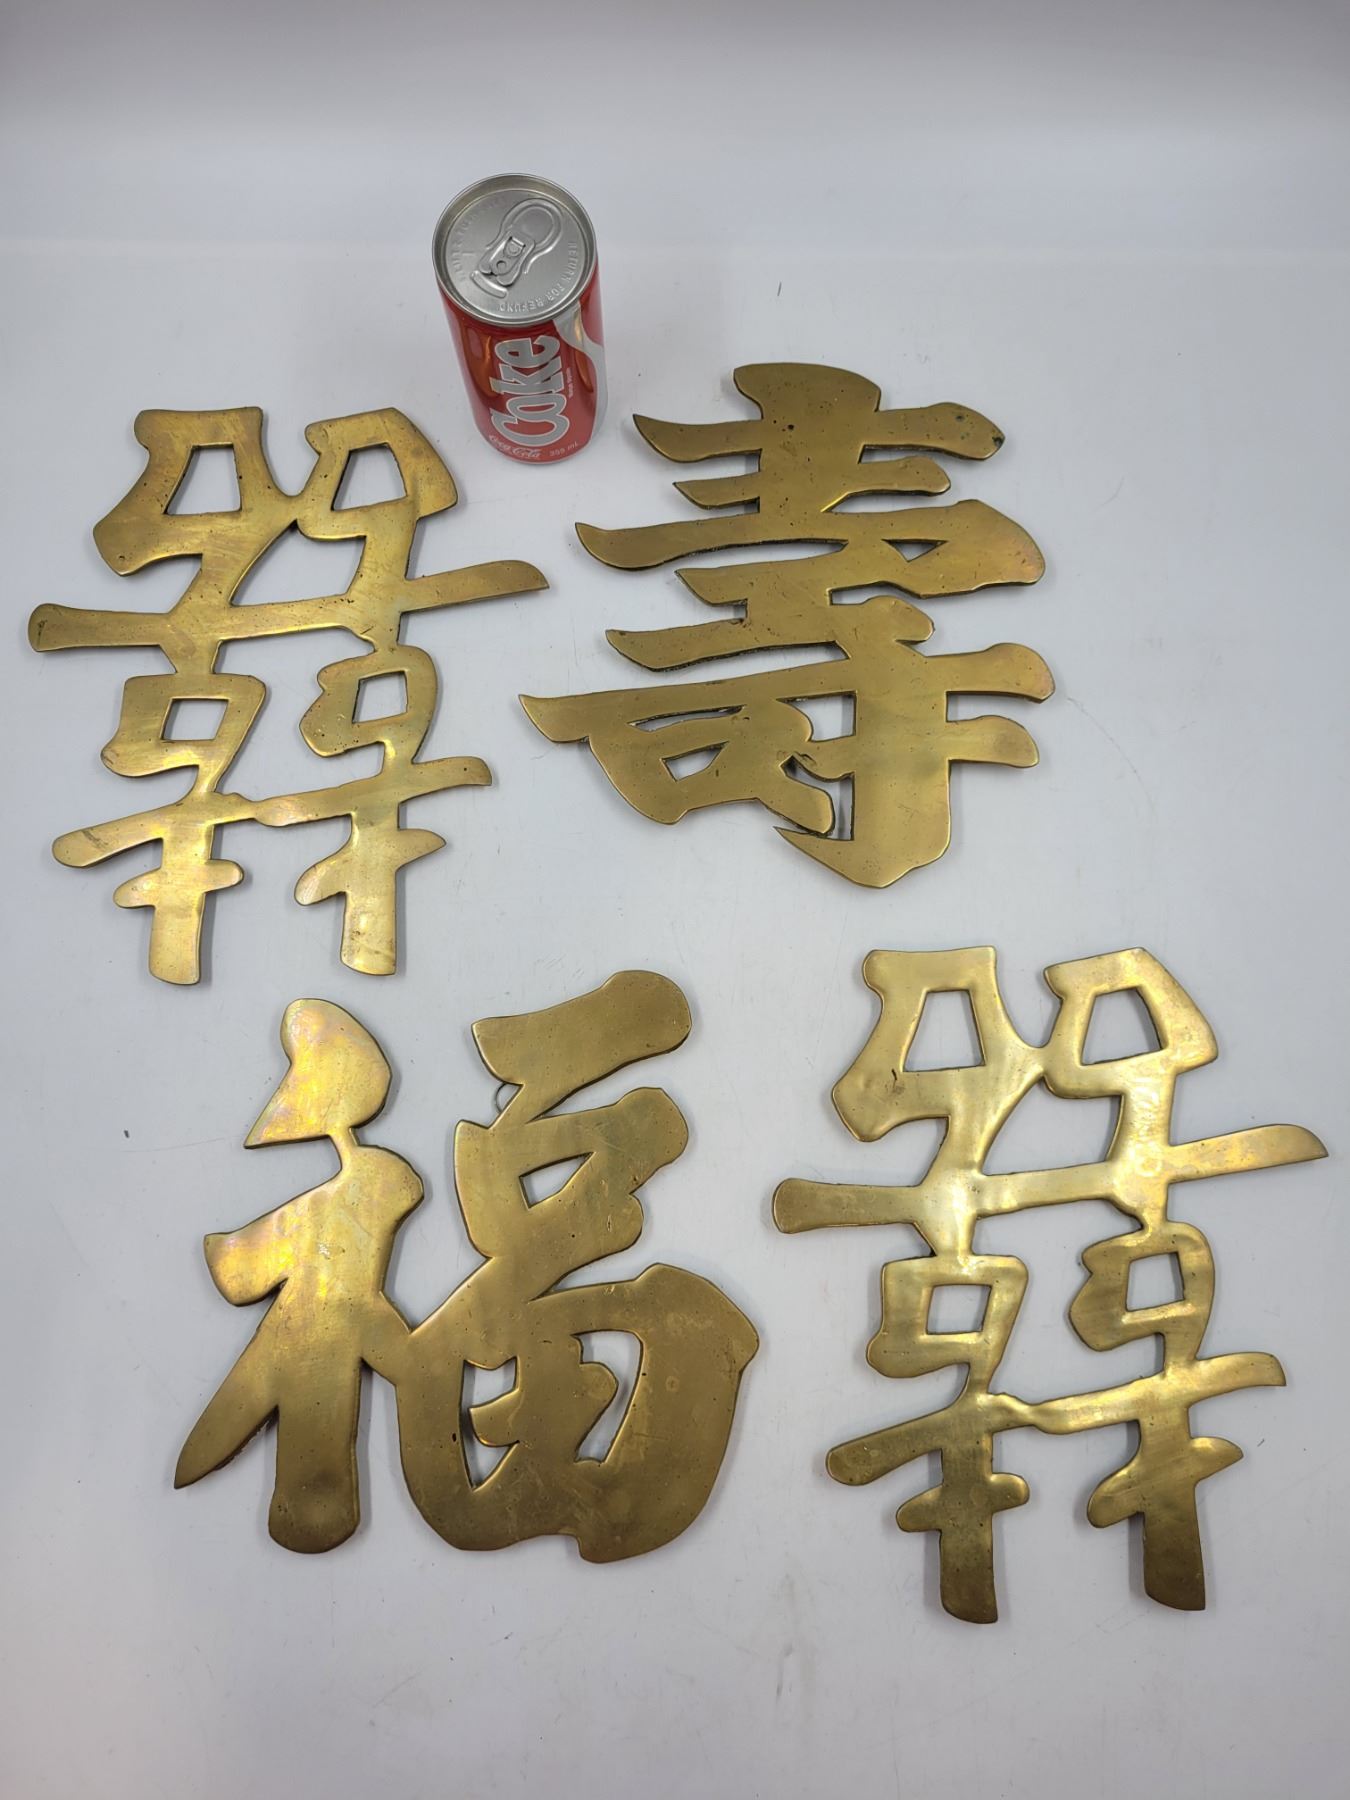 RETURN FOR REFUND
Coke
Coca-Cola 355 mL
囍
壽
福
囍